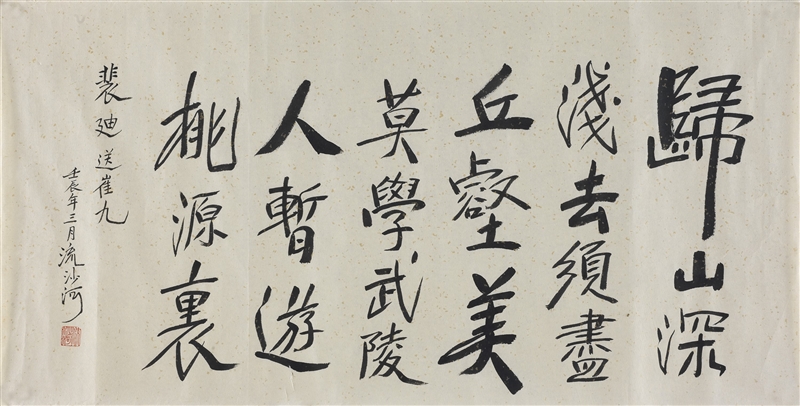 歸山深
淺去須盡
丘壑美
莫學武陵
人暫遊
桃源裏
裴迪送崔九
壬辰年三月流沙河